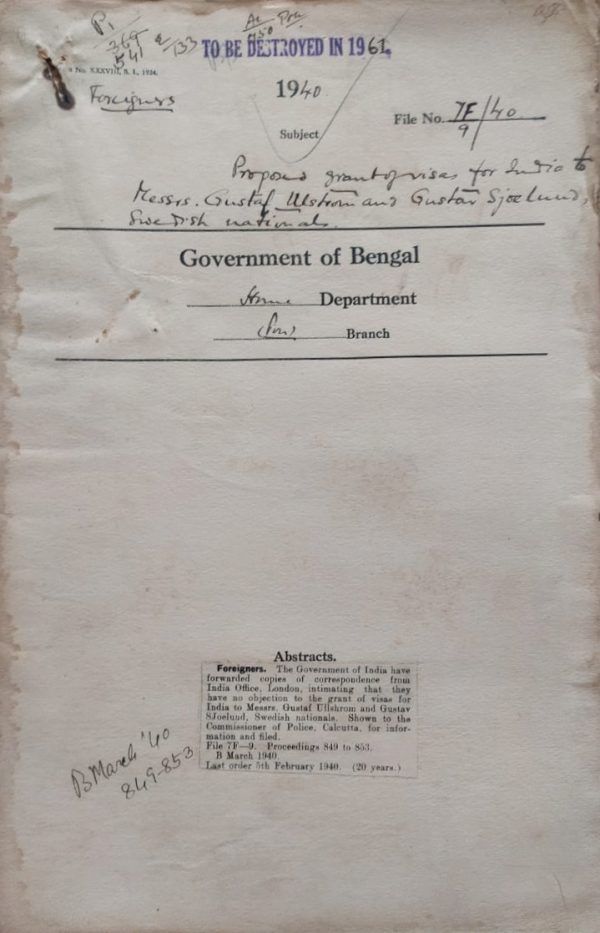 P1
369
541 & 133
TO BE DESTROYED IN 1961.
No. XXXVIII, S. I., 1934.
Foreigners
1940.
File No. 7F/40
9
Subject
Proposed grant of visas for India to
Messrs. Gustaf Ullstrom and Gustav Sjoelund,
Swedish nationals.
Government of Bengal
Home Department
(Pol) Branch
Abstracts.
Foreigners. The Government of India have
forwarded copies of correspondence from
India Office, London, intimating that they
have no objection to the grant of visas for
India to Messrs. Gustaf Ullshrom and Gustav
SJoelund, Swedish nationals. Shown to the
Commissioner of Police, Calcutta, for infor-
mation and filed.
File 7F—9. Proceedings 849 to 853.
B March 1940.
Last order 5th February 1940. (20 years.)
B March '40
849-853